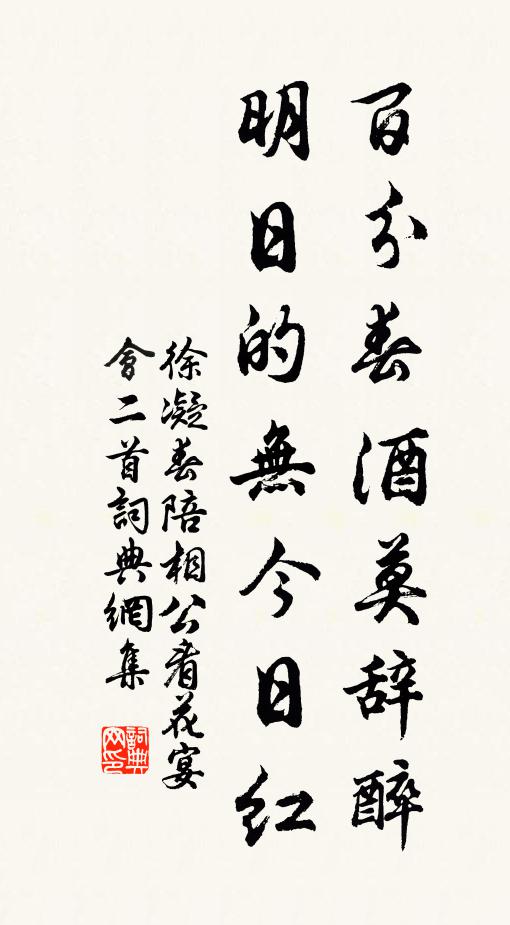 百分春酒莫辞醉
明日的無今日紅
徐凝春陪相公看花宴
會二首詞典網集
詞典
网印